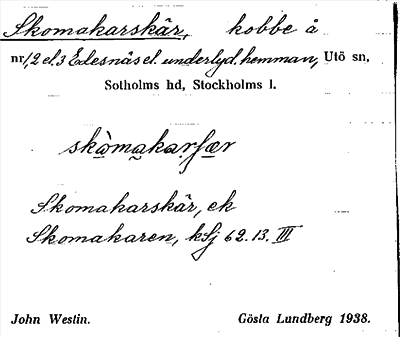 Skomakarskär, kobbe å
nr 1,2 el. 3 Edesnäs el. underlyd. hemman, Utö sn,
Sotholms hd, Stockholms l.
skòmakarʃær
Skomakarskär, ek
Skomakaren, kSj 62.13. III
John Westin. Gösta Lundberg 1938.